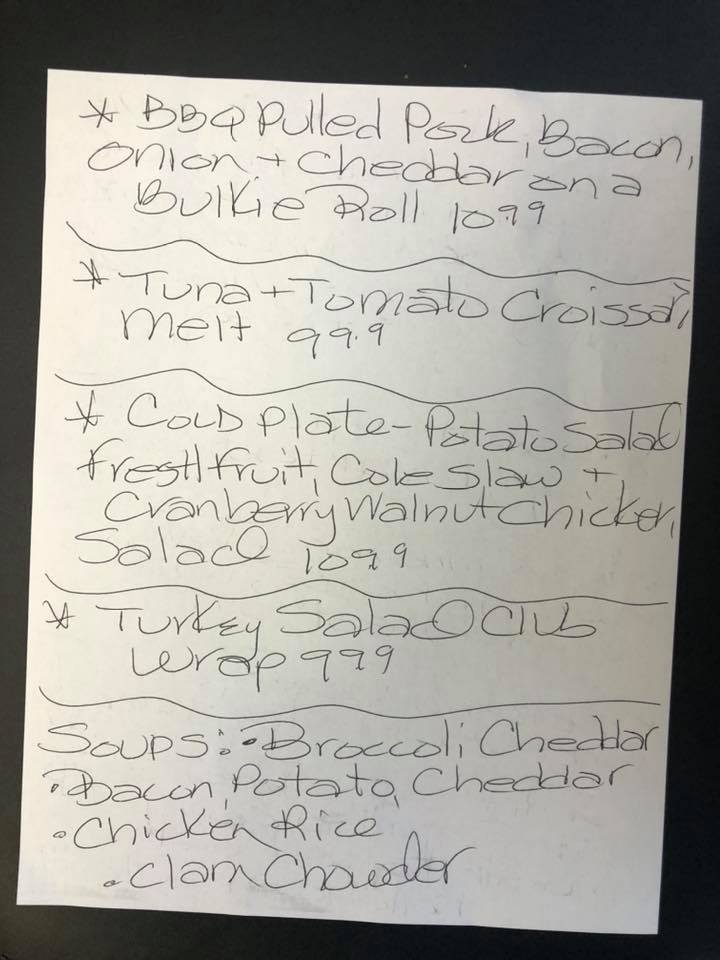 * BBQ Pulled Pork, Bacon,
Onion + Cheddar on a
Bulkie Roll 1099
* Tuna + Tomato Croissant
Melt 99.9
* Cold Plate - Potato Salad
Fresh Fruit, Cole Slaw +
Cranberry Walnut Chicken
Salad 1099
* Turkey Salad Club
Wrap 999
Soups: • Broccoli Cheddar
• Bacon, Potato, Cheddar
• Chicken Rice
• Clam Chowder